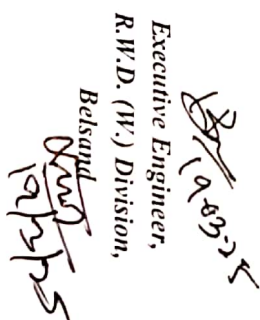 19-03-25
Executive Engineer,
R.W.D. (W.) Division,
Belsand
19/3/25